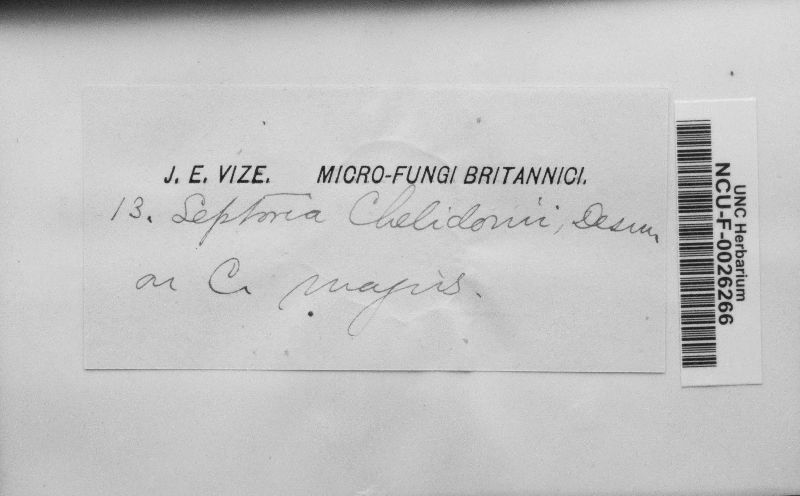 J. E. VIZE. MICRO-FUNGI BRITANNICI.
13. Septoria Chelidonii, Desm.
on C. majus.
UNC Herbarium
NCU-F-0026266